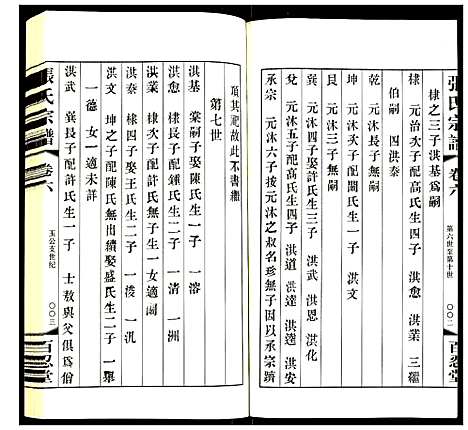 張氏宗譜 卷六 第六世至第十世 〇〇二 百忍堂
棣之三子洪基為嗣
棣 元治次子配高氏生三子 洪愈 洪業 三繼
伯嗣 四洪泰
乾 元沐長子無嗣
坤 元沐次子配閻氏生一子 洪文
艮 元沐三子無嗣
巽 元沐四子娶許氏生三子 洪武 洪恩 洪化
兌 元沐五子配高氏生四子 洪道 洪達 洪遠 洪安
承宗 元沐六子按元沐公以卦名叔名珍無子因以承宗躋
項其祀故此不書繼
第七世
洪基 棠嗣子娶陳氏生一子 一溶
洪愈 棣長子配鍾氏生二子 一清 一洲
洪業 棣次子配許氏生一子一女適閻
洪泰 棣四子娶王氏生二子 一浚 一汎
洪文 坤之子配陳氏無出續娶盛氏生二子 一舉
一德 女一適未詳
洪武 巽長子配許氏生一子 士敖與父俱為僧
張氏宗譜 卷六 玉公支世紀 〇〇三 百忍堂